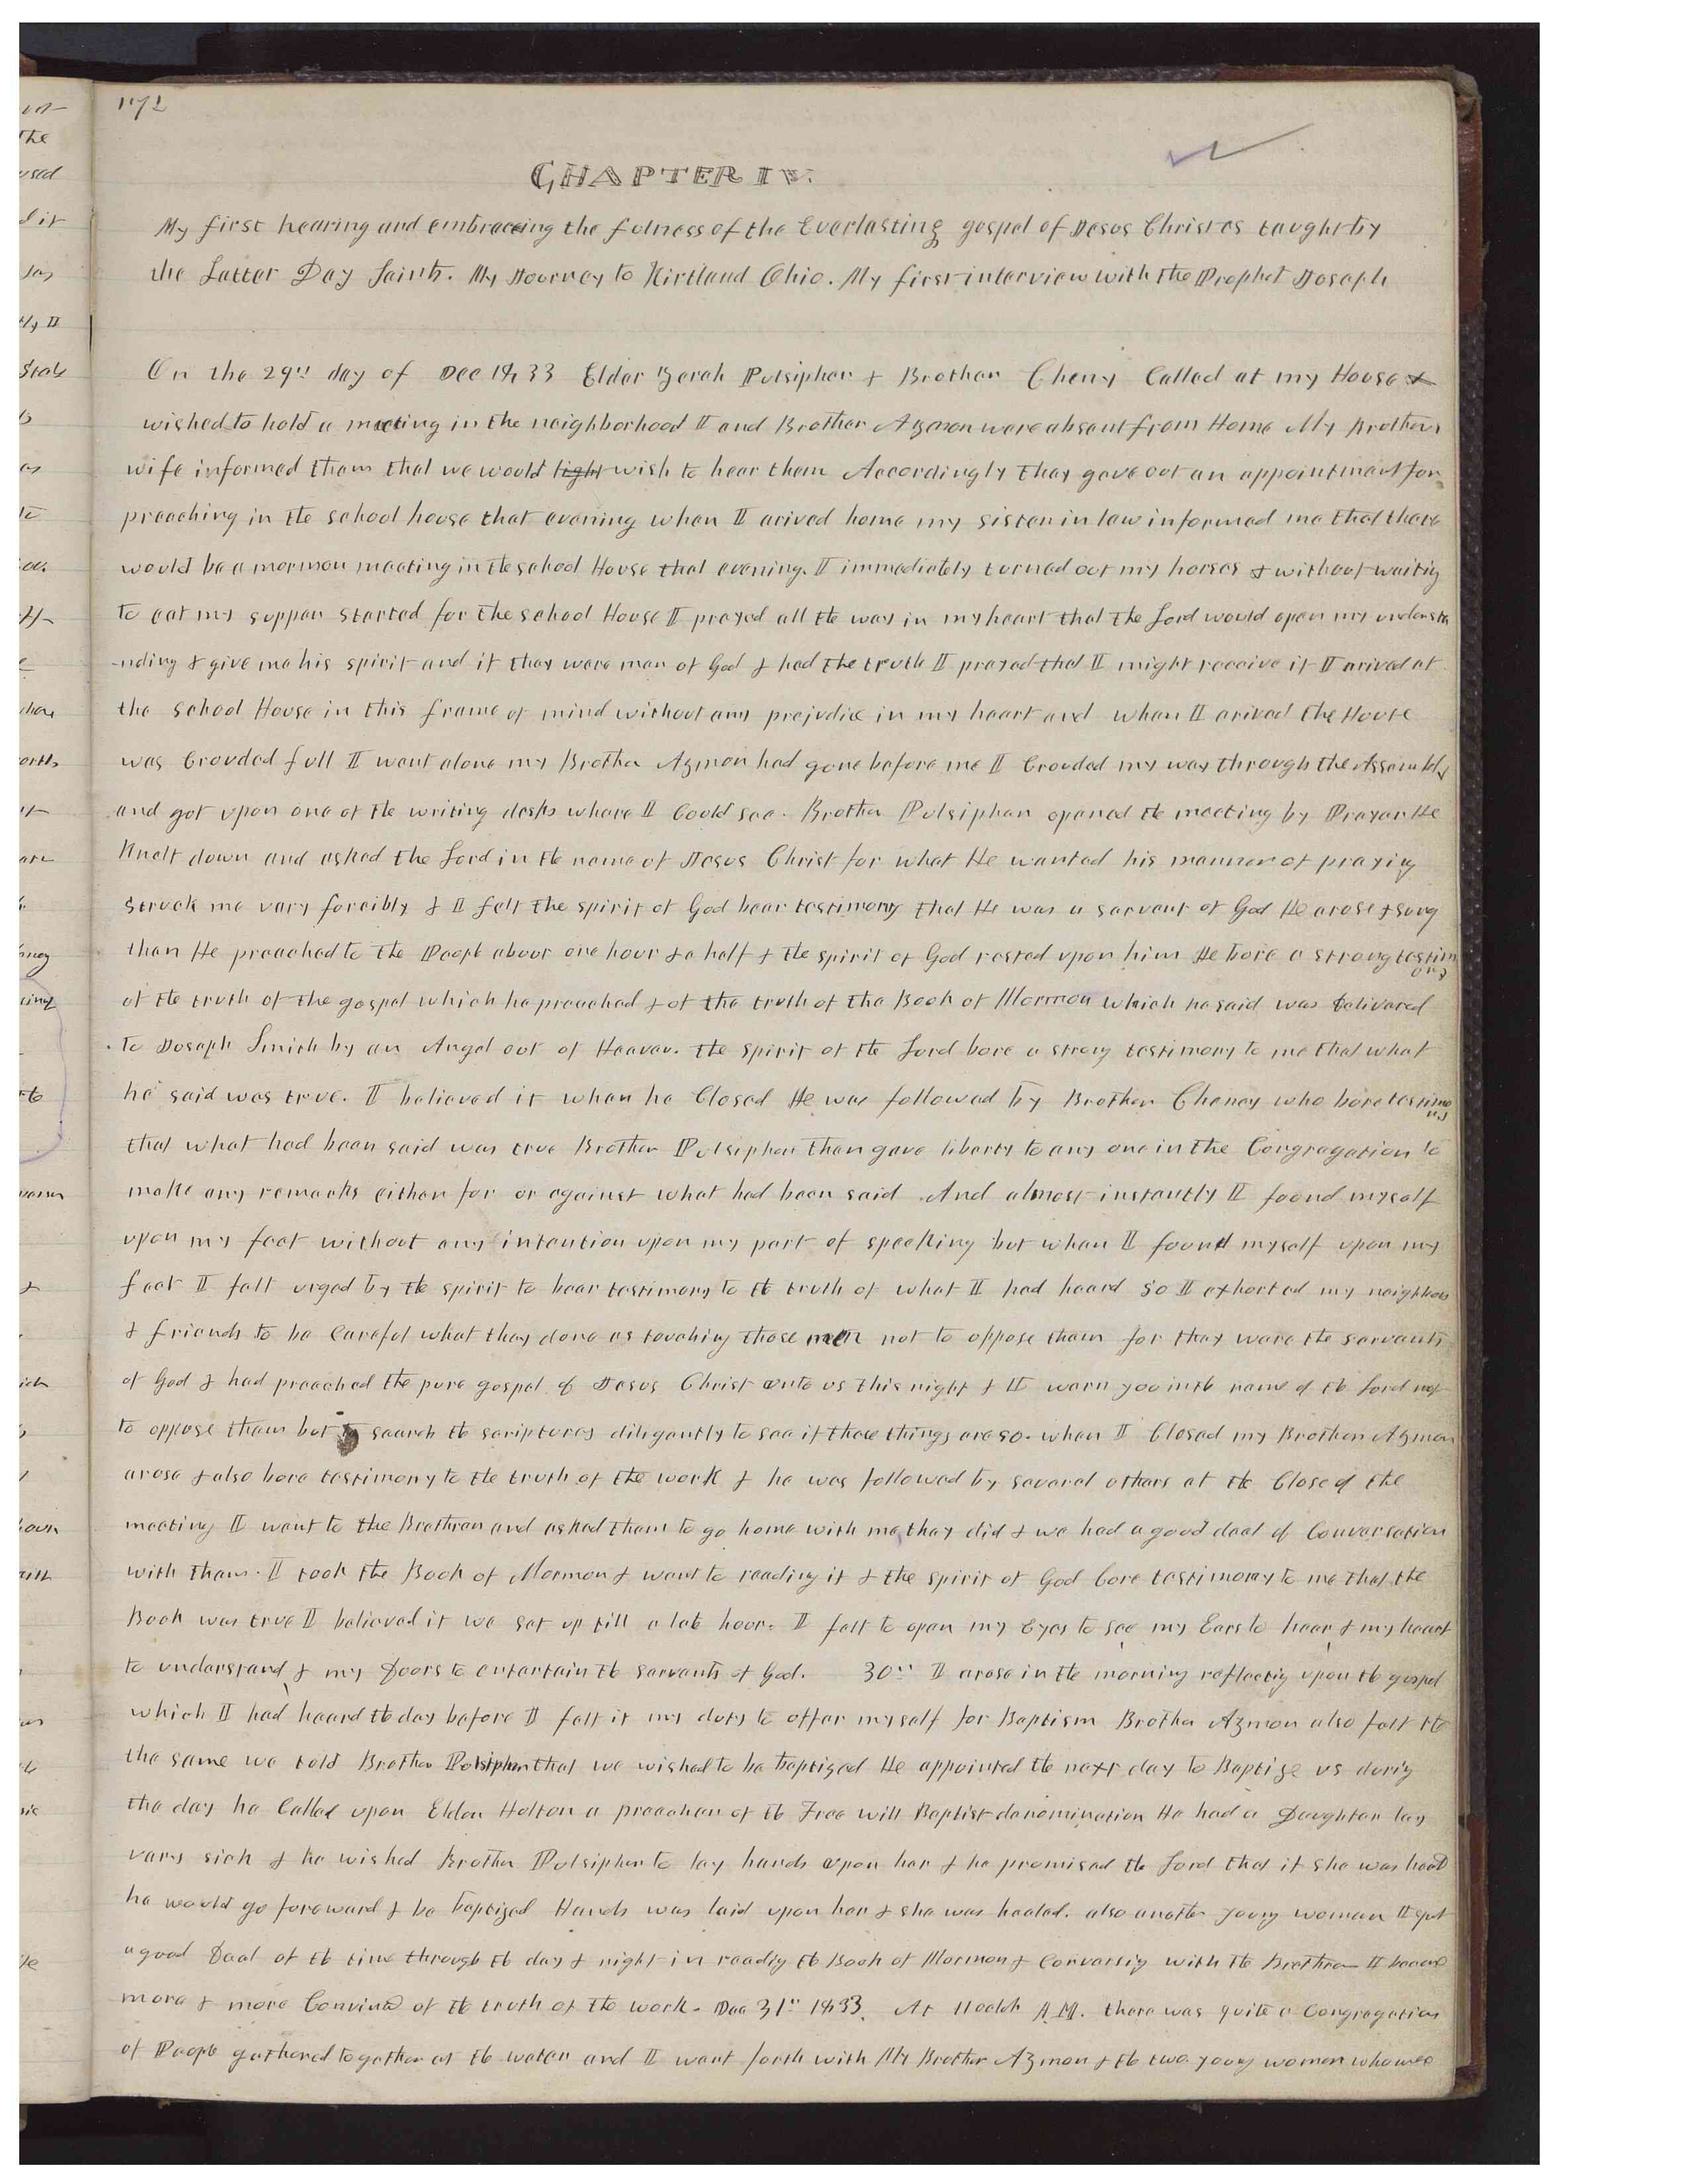 CHAPTER IV.
My first hearing and embraceing the fulness of the Everlasting gospel of Jesus Christ as taught by
the Latter Day Saints. My Journey to Kirtland Ohio. My first interview with the Prophet Joseph
On the 29th day of Dec 1833 Elder Zerah Pulsipher & Brother Cheny Called at my House &
wished to hold a meeting in the neighborhood I and Brother Azmon were absent from Home My Brothers
wife informed them that we would light wish to hear them Accordingly they gave out an appointment for
preaching in the school house that evening when I arived home my sister in law informed me that there
would be a mormon meeting in the school House that evening. I immediately turned out my horses & without waitig
to eat my supper started for the school House I prayed all the way in my heart that the Lord would open my understa
-nding & give me his spirit and if they were men of God & had the truth I prayed that I might receive it I arived at
the school House in this frame of mind without any prejudice in my heart and when I arived the House
was Crouded full I went alone my Brother Azmon had gone before me I Crouded my way through the Assembly
and got upon one of the writing desks where I Could see. Brother Pulsipher opened the meeting by Prayer He
Knelt down and asked the Lord in the name of Jesus Christ for what He wanted his manner of praying
struck me very forcibly & I felt the spirit of God bear testimony that He was a servant of God He arose & sung
then He preached to the People about one hour & a half & the spirit of God rested upon him He bore a strong testimony
of the truth of the gospel which he preached & of the truth of the Book of Mormon which he said was delivered
to Joseph Smith by an Angel out of Heaven. the spirit of the Lord bore a strong testimony to me that what
he said was true. I believed it when he Closed He was followed by Brother Cheney who bore testimony
that what had been said was true Brother Pulsipher then gave liberty to any one in the Congregation to
make any remarks either for or against what had been said And almost instantly I found myself
upon my feet without any intention upon my part of speeking but when I found myself upon my
feet I felt urged by the spirit to bear testimony to the truth of what I had heard So I exhorted my neighbors
& friends to be Careful what they done as touching those men not to oppose them for they were the servants
of God & had preached the pure gospel of Jesus Christ unto us this night & I warn you in the name of the Lord not
to oppose them but to search the scriptures diligently to see if these things are so. when I Closed my Brother Azmon
arose & also bore testimony to the truth of the work & he was followed by several others at the Close of the
meeting I went to the Brethren and asked them to go home with me they did & we had a good deal of Conversation
with them. I took the Book of Mormon & went to reading it & the spirit of God bore testimony to me that the
Book was true I believed it we set up till a late hour. I felt to open my Eyes to see my Ears to hear & my heart
to understand & my Doors to entertain the servants of God. 30th I arose in the morning reflectig upon the gospel
which I had heard the day before I felt it my duty to offer myself for Baptism Brother Azmon also felt the
the same we told Brother Pulsipher that we wished to be baptized He appointed the next day to Baptize us durig
the day he Called upon Elder Holton a preacher of the Free will Baptist denomination He had a Daughter lay
very sick & he wished Brother Pulsipher to lay hands upon her & he promised the Lord that if she was heald
he would go foreward & be baptized Hands was laid upon her & she was healed. also another young woman I spt
a good Deal of the time through the day & night in readig the Book of Mormon & Conversig with the Brethren I became
more & more Convincd of the truth of the work. Dec 31st 1833. At 11 oclok A.M. there was quite a Congregation
of People gathered together at the water and I went forth with My Brother Azmon & the two young women who was